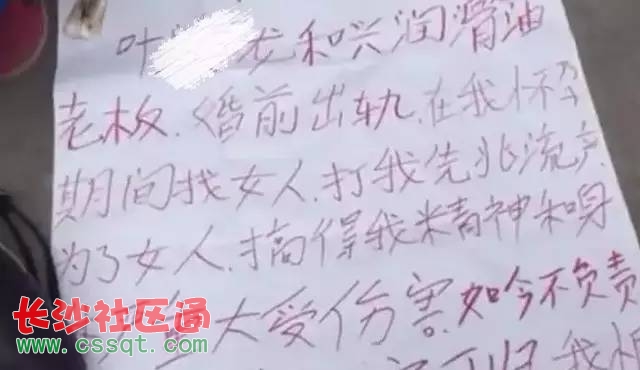 叶 龙和兴润滑油
老板.婚前出轨.在我怀孕
期间找女人.打我先兆流产
为了女人.搞得我精神和身
大受伤害.如今不负责
可归我
长沙社区通
www.cssqt.com